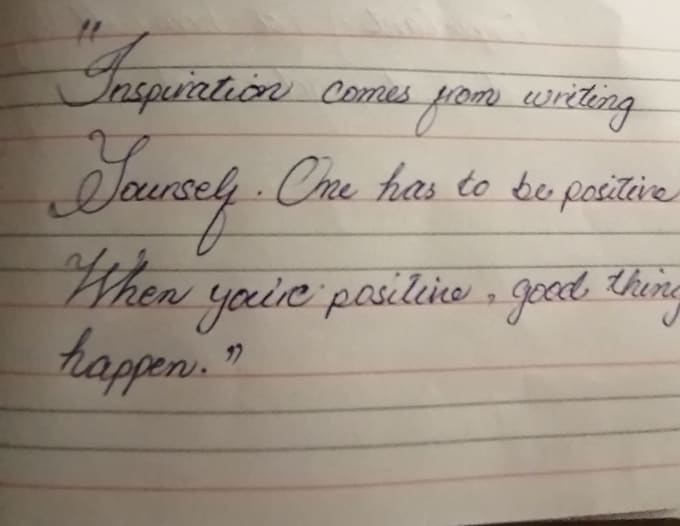 "Inspiration comes from writing
Yourself. One has to be positive
When you're positive, good thing
happen."